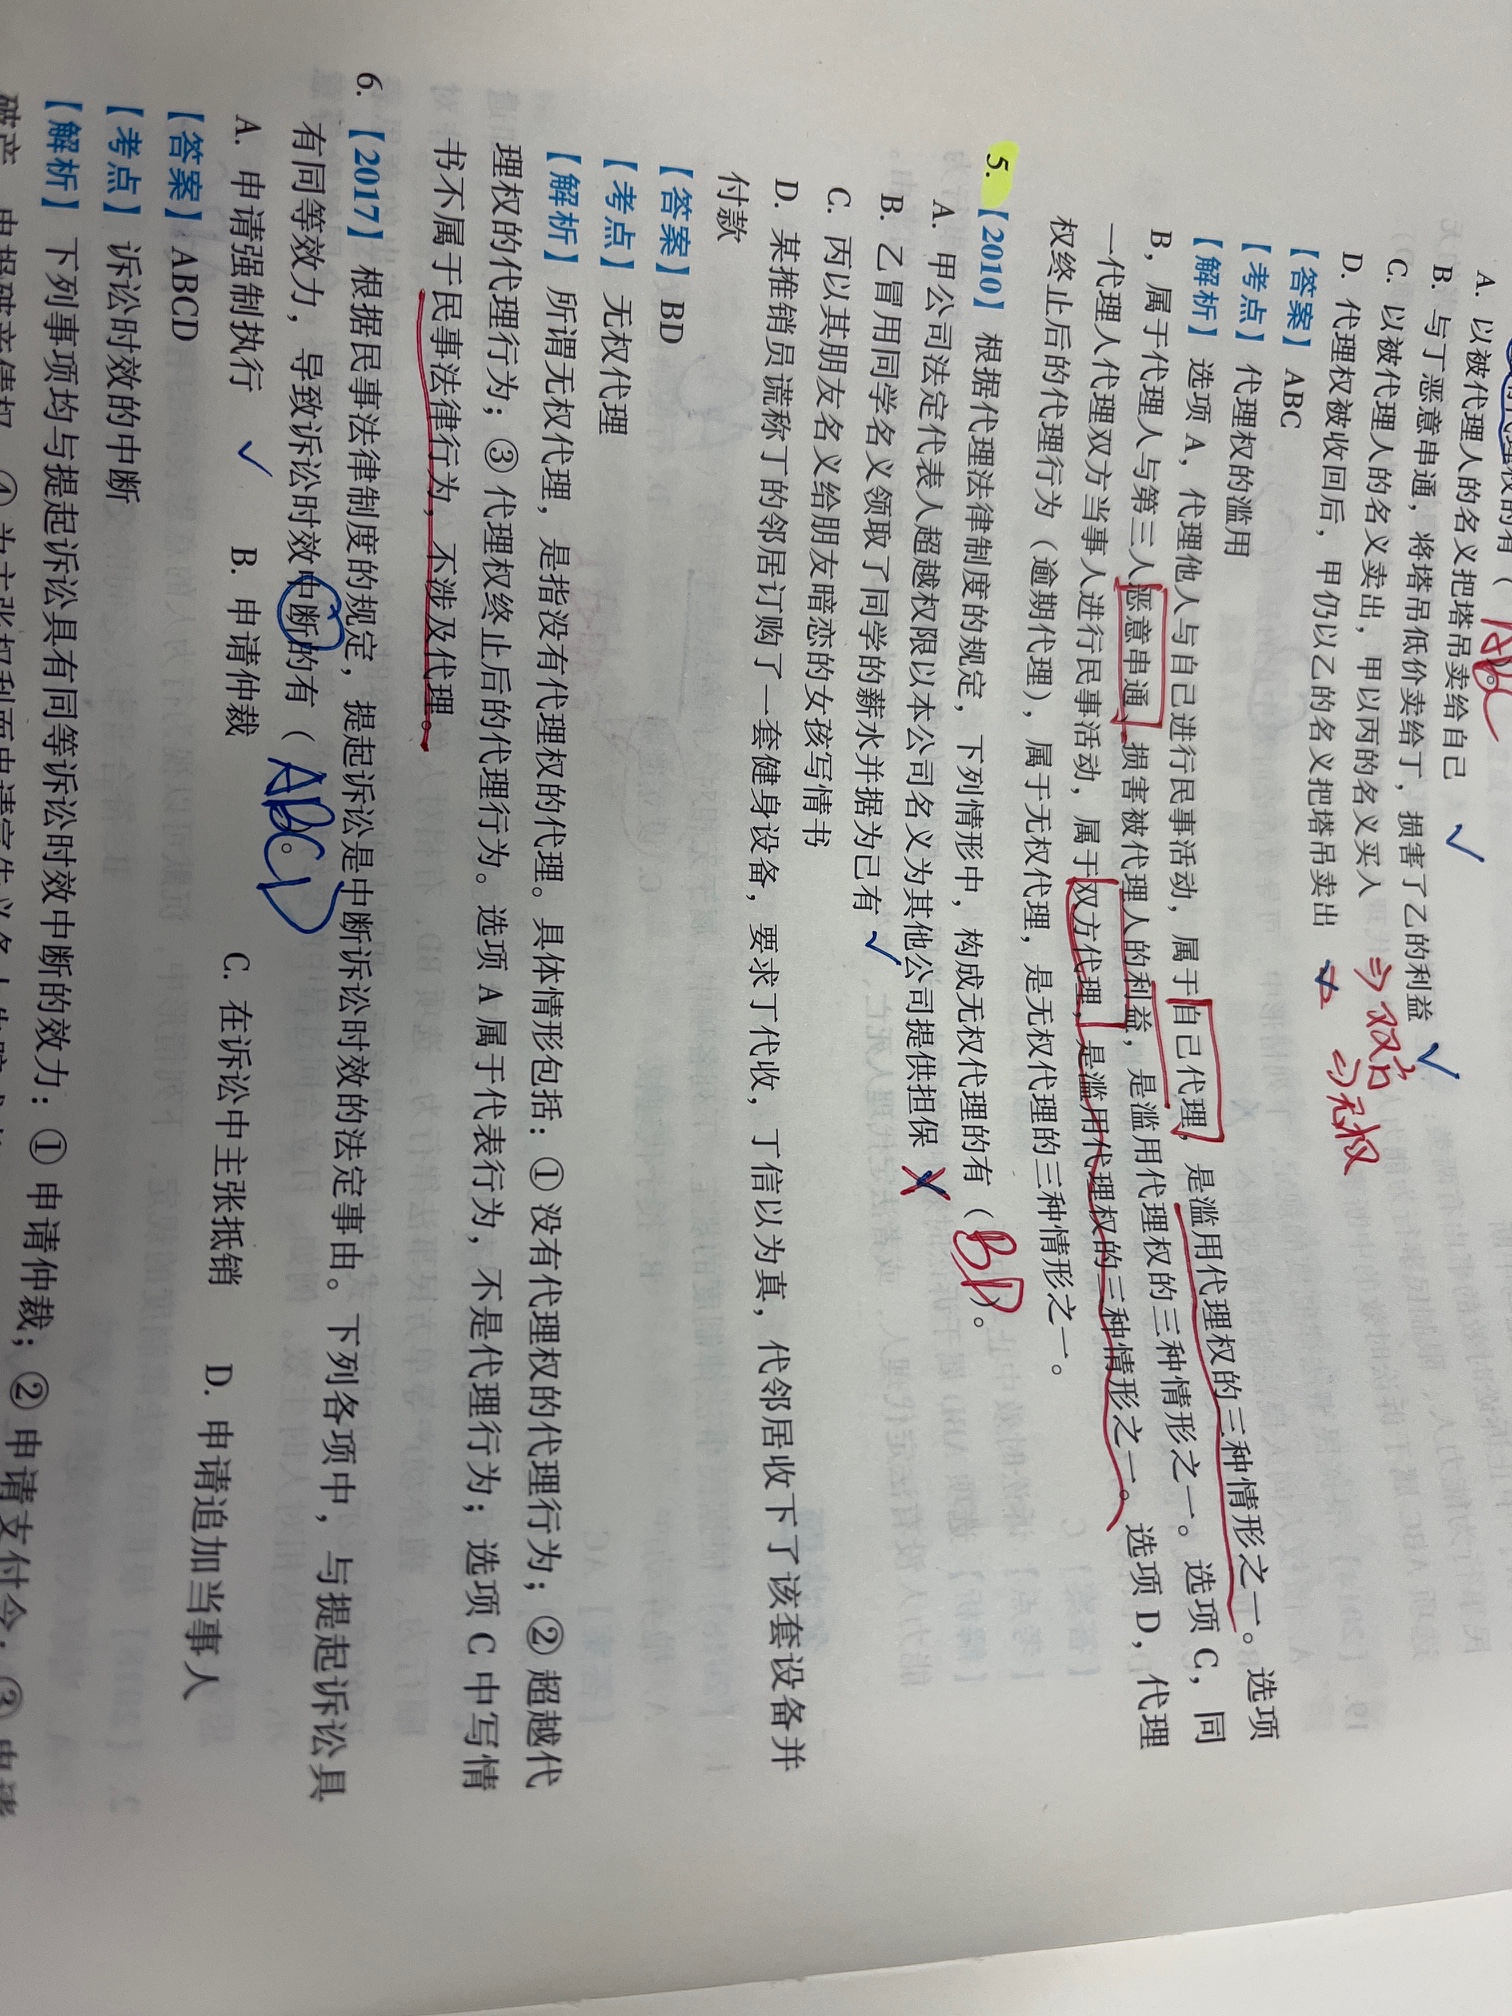 A. 以被代理人的名义把塔吊卖给自己 ✓
B. 与丁恶意串通，将塔吊低价卖给丁，损害了乙的利益 ✓
C. 以被代理人的名义卖出，甲以丙的名义买入 ⇒双方
D. 代理权被收回后，甲仍以乙的名义把塔吊卖出 ⇒无权
【答案】ABC
【考点】代理权的滥用
【解析】选项 A，代理他人与自己进行民事活动，属于自己代理，是滥用代理权的三种情形之一。选项
B，属于代理人与第三人恶意串通，损害被代理人的利益，是滥用代理权的三种情形之一。选项 C，同
一代理人代理双方当事人进行民事活动，属于双方代理，是滥用代理权的三种情形之一。选项 D，代理
权终止后的代理行为（逾期代理），属于无权代理，是无权代理的三种情形之一。
5.【2010】根据代理法律制度的规定，下列情形中，构成无权代理的有（BD）。
A. 甲公司法定代表人超越权限以本公司名义为其他公司提供担保 ✗
B. 乙冒用同学名义领取了同学的薪水并据为己有 ✓
C. 丙以其朋友名义给朋友暗恋的女孩写情书
D. 某推销员谎称丁的邻居订购了一套健身设备，要求丁代收，丁信以为真，代邻居收下了该套设备并
付款
【答案】BD
【考点】无权代理
【解析】所谓无权代理，是指没有代理权的代理。具体情形包括：① 没有代理权的代理行为；② 超越代
理权的代理行为；③ 代理权终止后的代理行为。选项 A 属于代表行为，不是代理行为；选项 C 中写情
书不属于民事法律行为，不涉及代理。
6.【2017】根据民事法律制度的规定，提起诉讼是中断诉讼时效的法定事由。下列各项中，与提起诉讼具
有同等效力，导致诉讼时效中断的有（ABCD）。
A. 申请强制执行 ✓ B. 申请仲裁 C. 在诉讼中主张抵销 D. 申请追加当事人
【答案】ABCD
【考点】诉讼时效的中断
【解析】下列事项均与提起诉讼具有同等诉讼时效中断的效力：① 申请仲裁；② 申请支付令；③ 申请
破产、申报破产债权；④ 为主张权利而申请宣告义务人失踪或